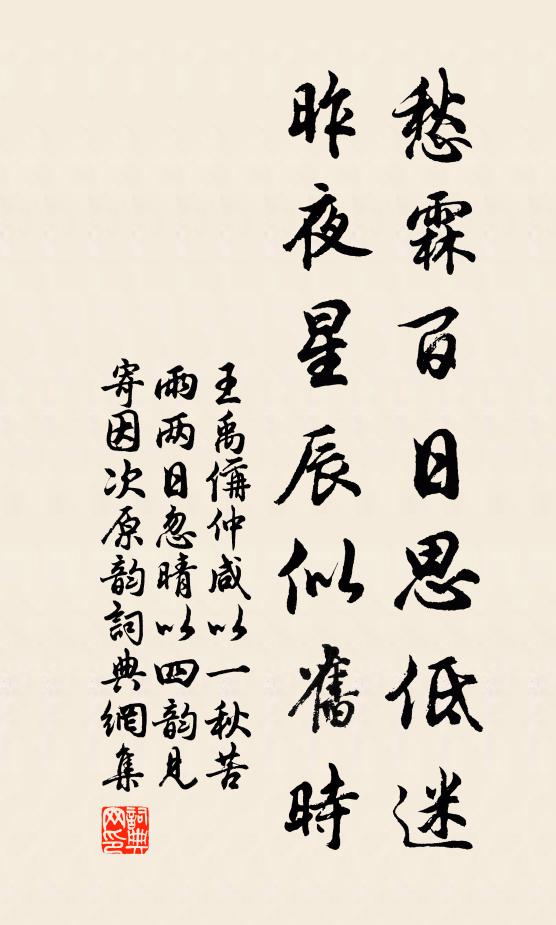 愁霖百日思低迷
昨夜星辰似舊時
王禹偁仲咸以一秋苦
雨两日忽晴以四韵見
寄因次原韵詞典網集
詞典网印